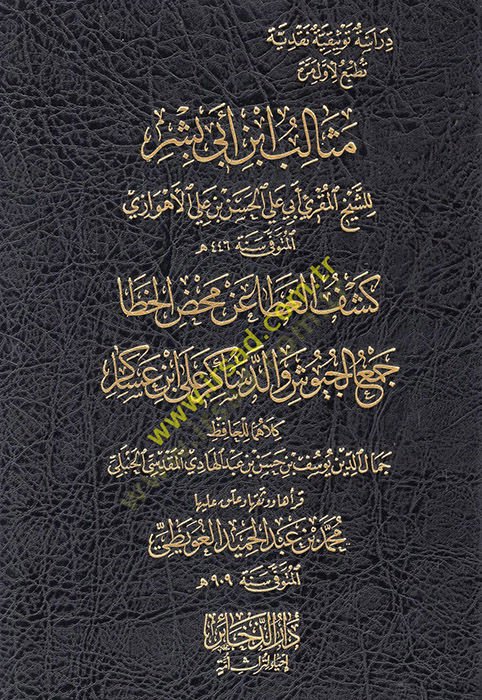 دراسة توثيقية نقدية
تطبع لأول مرة
مثالب ابن أبي بشر
للشيخ المقرئ أبي علي الحسن بن علي الأهوازي
المتوفى سنة ٤٤٦ هـ
كشف الغطا عن محض الخطا
جمع الجيوش والدساكر على ابن عساكر
كلاهما للحافظ
جمال الدين يوسف بن حسن بن عبد الهادي المقدسي الحنبلي
قرأها ووثقها وعلق عليها
محمد بن عبد الحميد العويطي
المتوفى سنة ٩٠٩ هـ
دار الذخائر